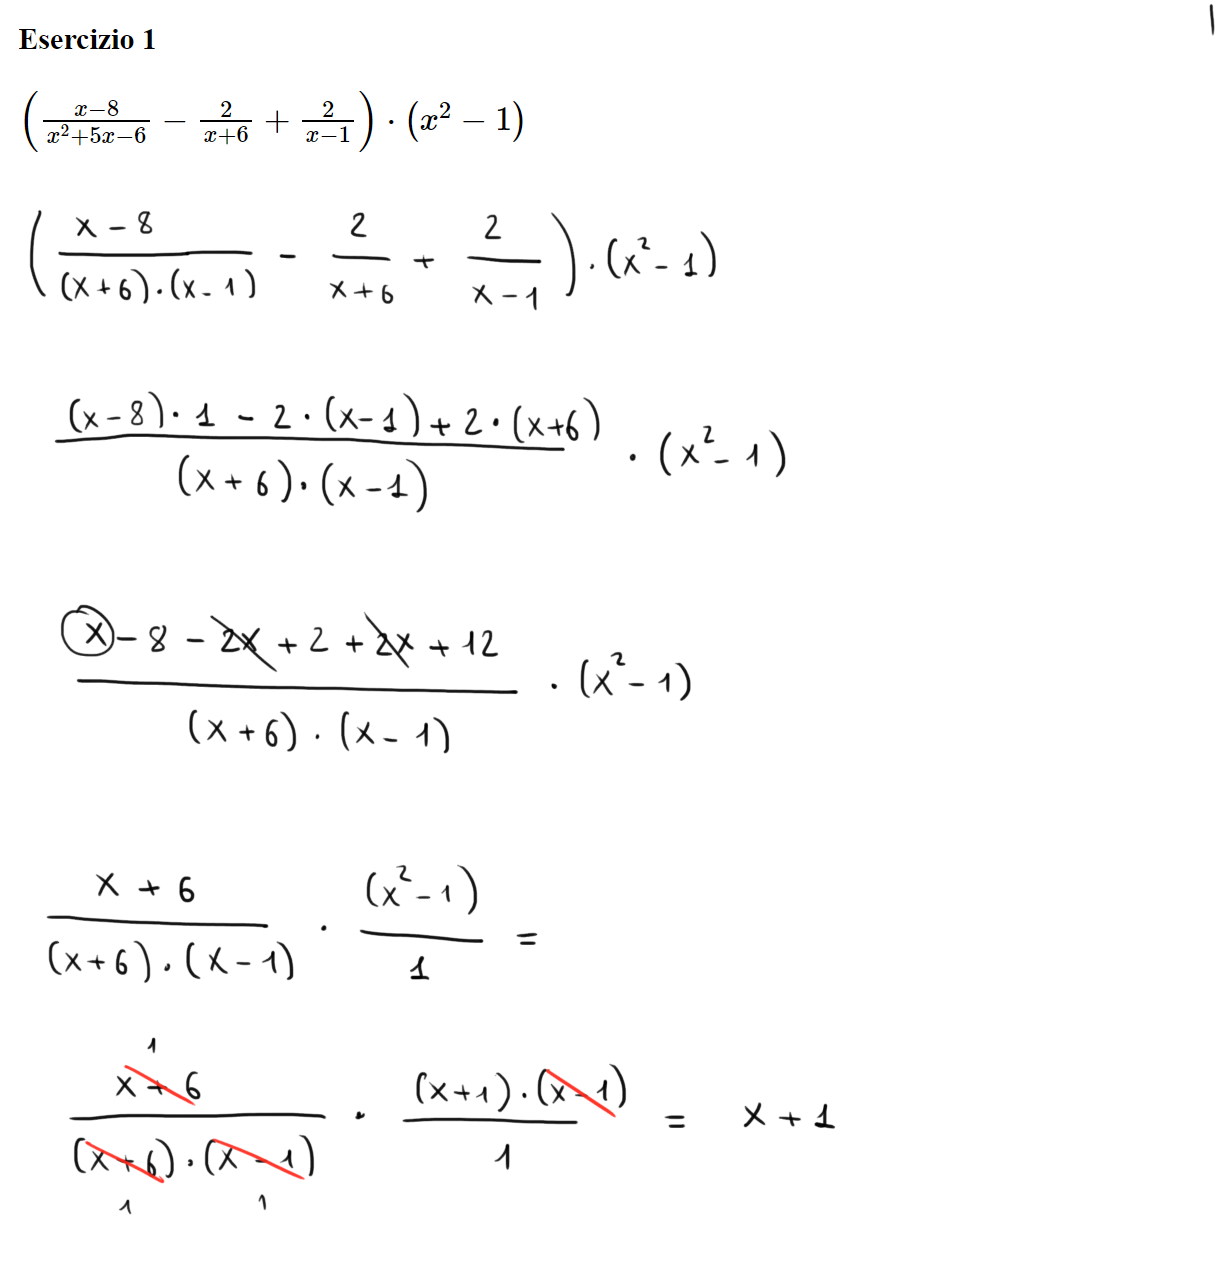 Esercizio 1
(x−8/x²+5x−6 − 2/x+6 + 2/x−1) · (x² − 1)
(x − 8/(x+6)·(x−1) − 2/x+6 + 2/x−1) · (x² − 1)
(x−8)·1 − 2·(x−1) + 2·(x+6)/(x+6)·(x−1) · (x² − 1)
x − 8 − 2x + 2 + 2x + 12/(x+6)·(x−1) · (x² − 1)
x + 6/(x+6)·(x−1) · (x² − 1)/1 =
1
x + 6/(x+6)·(x−1) · (x+1)·(x−1)/1 = x + 1
1 1